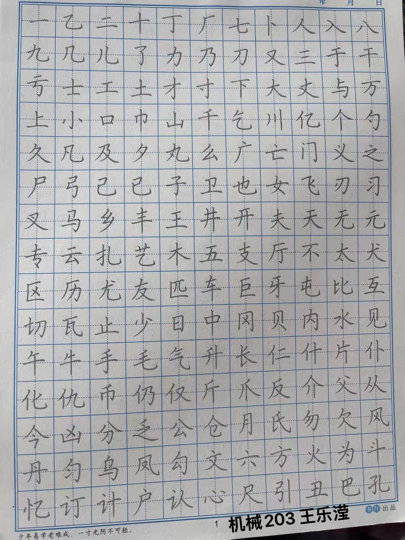 年 月 日
一 乙 二 十 丁 厂 七 卜 人 入 八
九 几 儿 了 力 乃 刀 又 三 于 干
亏 士 工 土 才 寸 下 大 丈 与 万
上 小 口 巾 山 千 乞 川 亿 个 勺
久 凡 及 夕 丸 么 广 亡 门 义 之
尸 弓 己 已 子 卫 也 女 飞 刃 习
叉 马 乡 丰 王 井 开 夫 天 无 元
专 云 扎 艺 木 五 支 厅 不 太 犬
区 历 尤 友 匹 车 巨 牙 屯 比 互
切 瓦 止 少 日 中 冈 贝 内 水 见
午 牛 手 毛 气 升 长 仁 什 片 仆
化 仇 币 仍 仅 斤 爪 反 介 父 从
今 凶 分 乏 公 仓 月 氏 勿 欠 风
丹 匀 乌 凤 勾 文 六 方 火 为 斗
忆 订 计 户 认 心 尺 引 丑 巴 孔
少年易学老难成，一寸光阴不可轻。 1 出品
机械203 王乐滢